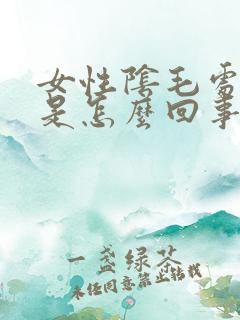 女性陰毛露
是怎麼回事
一盏绿茶
未经同意禁止转载